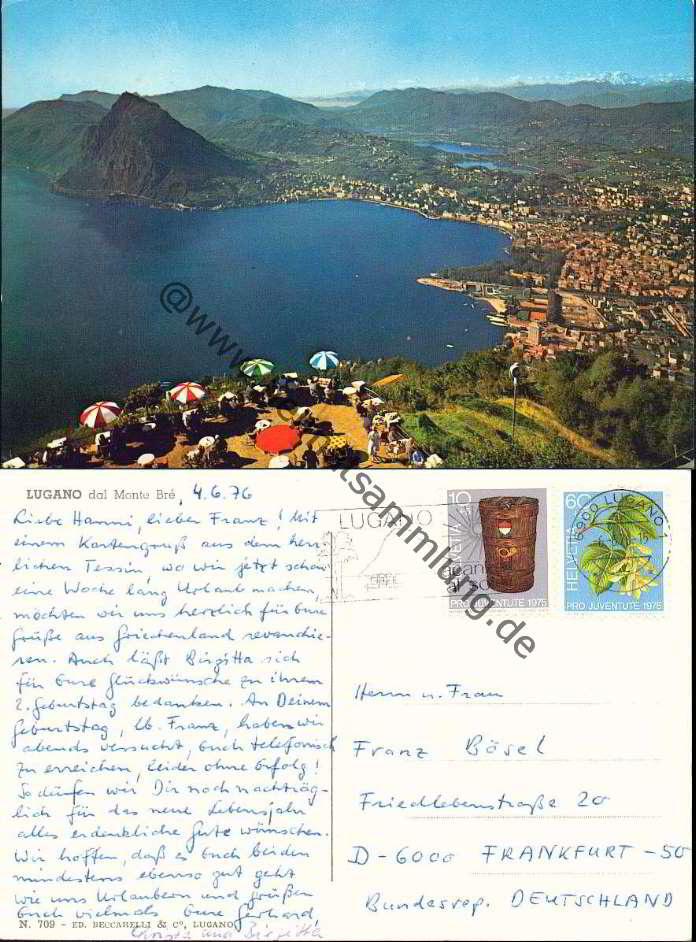 @www.
sammlung.de
LUGANO dal Monte Brè, 4.6.76
Liebe Hanni, lieber Franz! Mit
einem Kartengruß aus dem herr-
lichen Tessin, wo wir jetzt schon
eine Woche lang Urlaub machen,
möchten wir uns herzlich für Eure
Grüße aus Griechenland revanchie-
ren. Auch läßt Birgitta sich
für Eure Glückwünsche zu ihrem
2. Geburtstag bedanken. An Deinem
Geburtstag, lb. Franz, haben wir
abends versucht, Euch telefonisch
zu erreichen, leider ohne Erfolg!
So dürfen wir Dir noch nachträg-
lich für das neue Lebensjahr
alles erdenkliche Gute wünschen.
Wir hoffen, daß es Euch beiden
mindestens ebenso gut geht
wie uns Urlaubern und grüßen
Euch vielmals Eure Gerhard,
Christa und Birgitta
N. 709 - ED. BECCARELLI & Cº, LUGANO
LUGANO
10
HELVETIA
PRO JUVENTUTE 1975
60
HELVETIA
PRO JUVENTUTE 1975
6900 LUGANO 1
Herrn u. Frau
Franz Bösel
Friedlebenstraße 20
D-6000 FRANKFURT-50
Bundesrep. DEUTSCHLAND